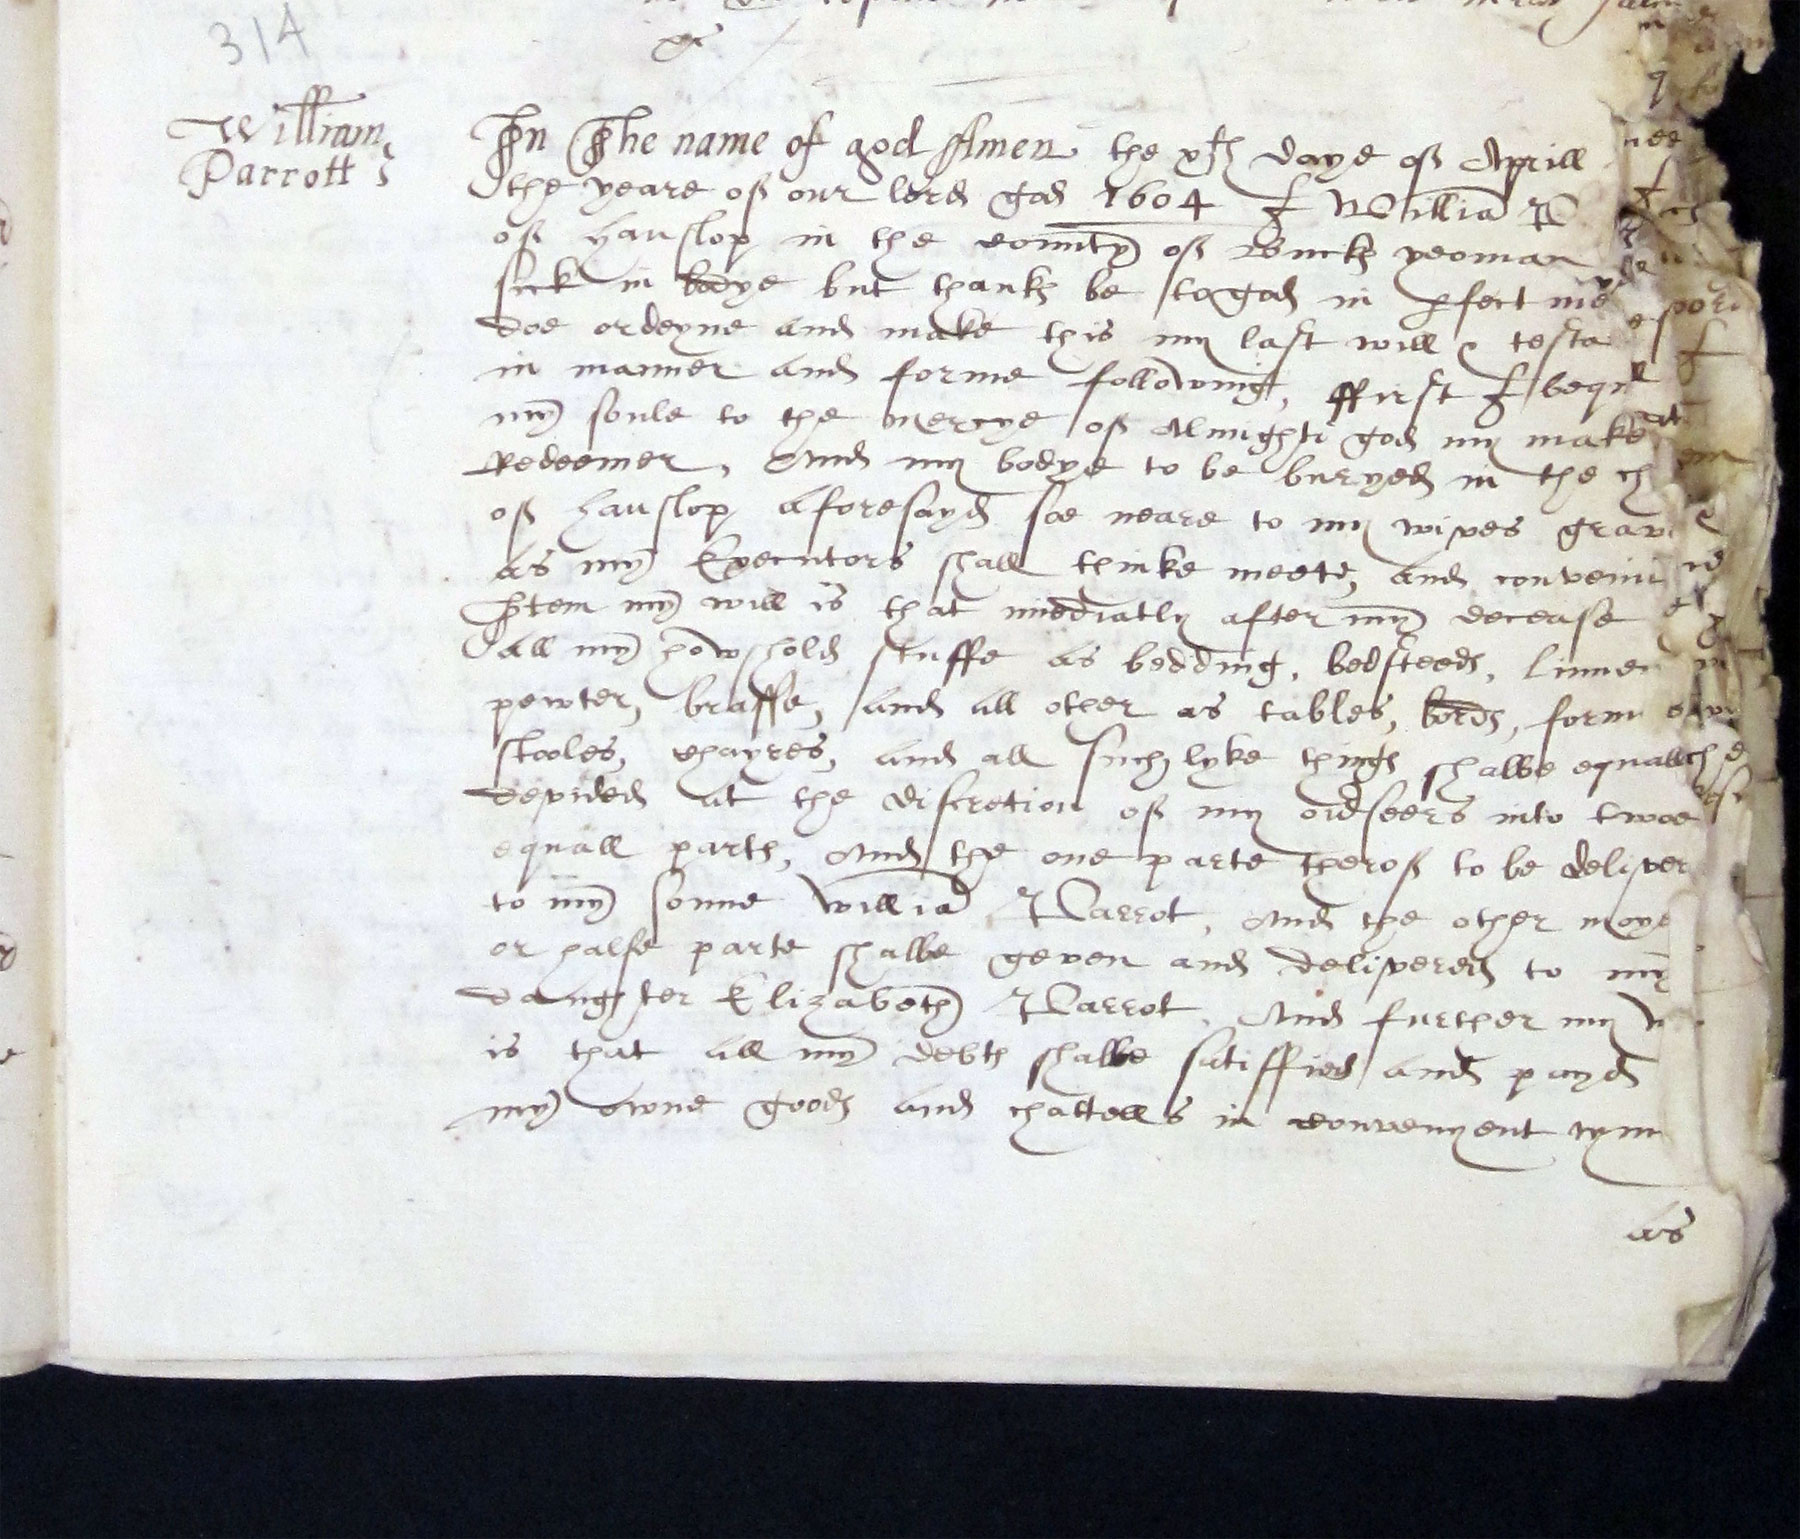 314
William
Parrott
In The name of god Amen the xth daye of Aprill
the yeare of our lord god 1604 I Willia P
of Hanslop in the county of Bucks yeoman
sick in bodye but thanks be to god in pfect me
doe ordeyne and make this my last will & testa
in manner and forme following, ffirst I bequ
my soule to the mercye of Almighti god my make
Redeemer, And my bodye to be buryed in the ch
of hanslop aforesayd soe neare to my wives grav
as my Executors shall thinke meete, and conveni
Item my will is that imediatly after my decease
all my howshold stuffe as bedding, bedsteeds, linnen
pewter, brasse, and all other as tables, bords, form
stooles, chayres, and all such lyke things shalbe equall
devided at the discretion of my ovdseers into twoe
equall parts, And the one parte therof to be deliver
to my sonne Willia Parrot, And the other moye
or halfe parte shalbe geven and delivered to my
daughter Elizabeth Parrot, And further my w
is that all my debts shalbe satisfied and payd
my owne goods and chattells in convenyent tym
as